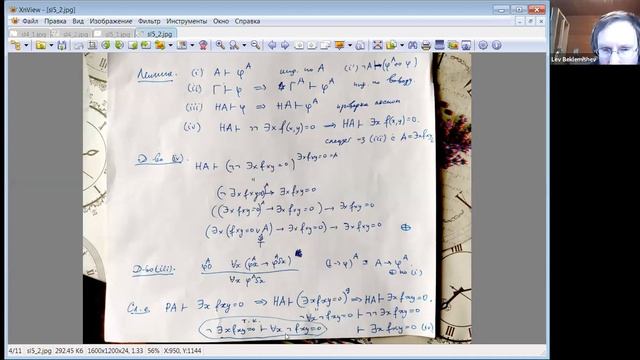 XnView - [sl5_2.jpg]
Файл Правка Вид Изображение Фильтр Инструменты Окно Справка
sl4_1.jpg sl5_1.jpg sl5_2.jpg
Lev Beklemishev
Лемма. (i) A ⊢ φᴬ инд. по A (i') ¬A ⊢ (φᴬ ↔ φ)
(ii) Γ ⊢ φ ⟹ Γᴬ ⊢ φᴬ инд. по выводу
(iii) HA ⊢ φ ⟹ HA ⊢ φᴬ проверка аксиом
(iv) HA ⊢ ¬¬∃x f(x,y)=0 ⟹ HA ⊢ ∃x f(x,y)=0.
следует из (iii) с A = ∃x fxy
Д-во (iv). HA ⊢ (¬¬∃x fxy=0)^{∃x fxy=0 = A}
(¬∃x fxy=0)ᴬ → ∃x fxy=0
((∃x fxy=0)ᴬ → ∃x fxy=0) → ∃x fxy=0
(∃x (fxy=0 ∨ A) → ∃x fxy=0) → ∃x fxy=0
Д-во (iii). φᴬ0 ∀x (φᴬx → φᴬSx)
∀x φᴬx
(θ → ψ)ᴬ A → φᴬ
по (i)
Сл-е PA ⊢ ∃x fxy=0 ⟹ HA ⊢ (∃x fxy=0)^g ⟹ HA ⊢ ∃x fxy=0.
¬∀x¬ fxy=0 ⊢ ¬¬∃x fxy=0
т.к. ¬∃x fxy=0 ⊢ ∀x ¬fxy=0 ⊢ ∃x fxy=0 (iv)
4/11 sl5_2.jpg 292.45 Кб 1600x1200x24, 1.33 56% X:950, Y:1144